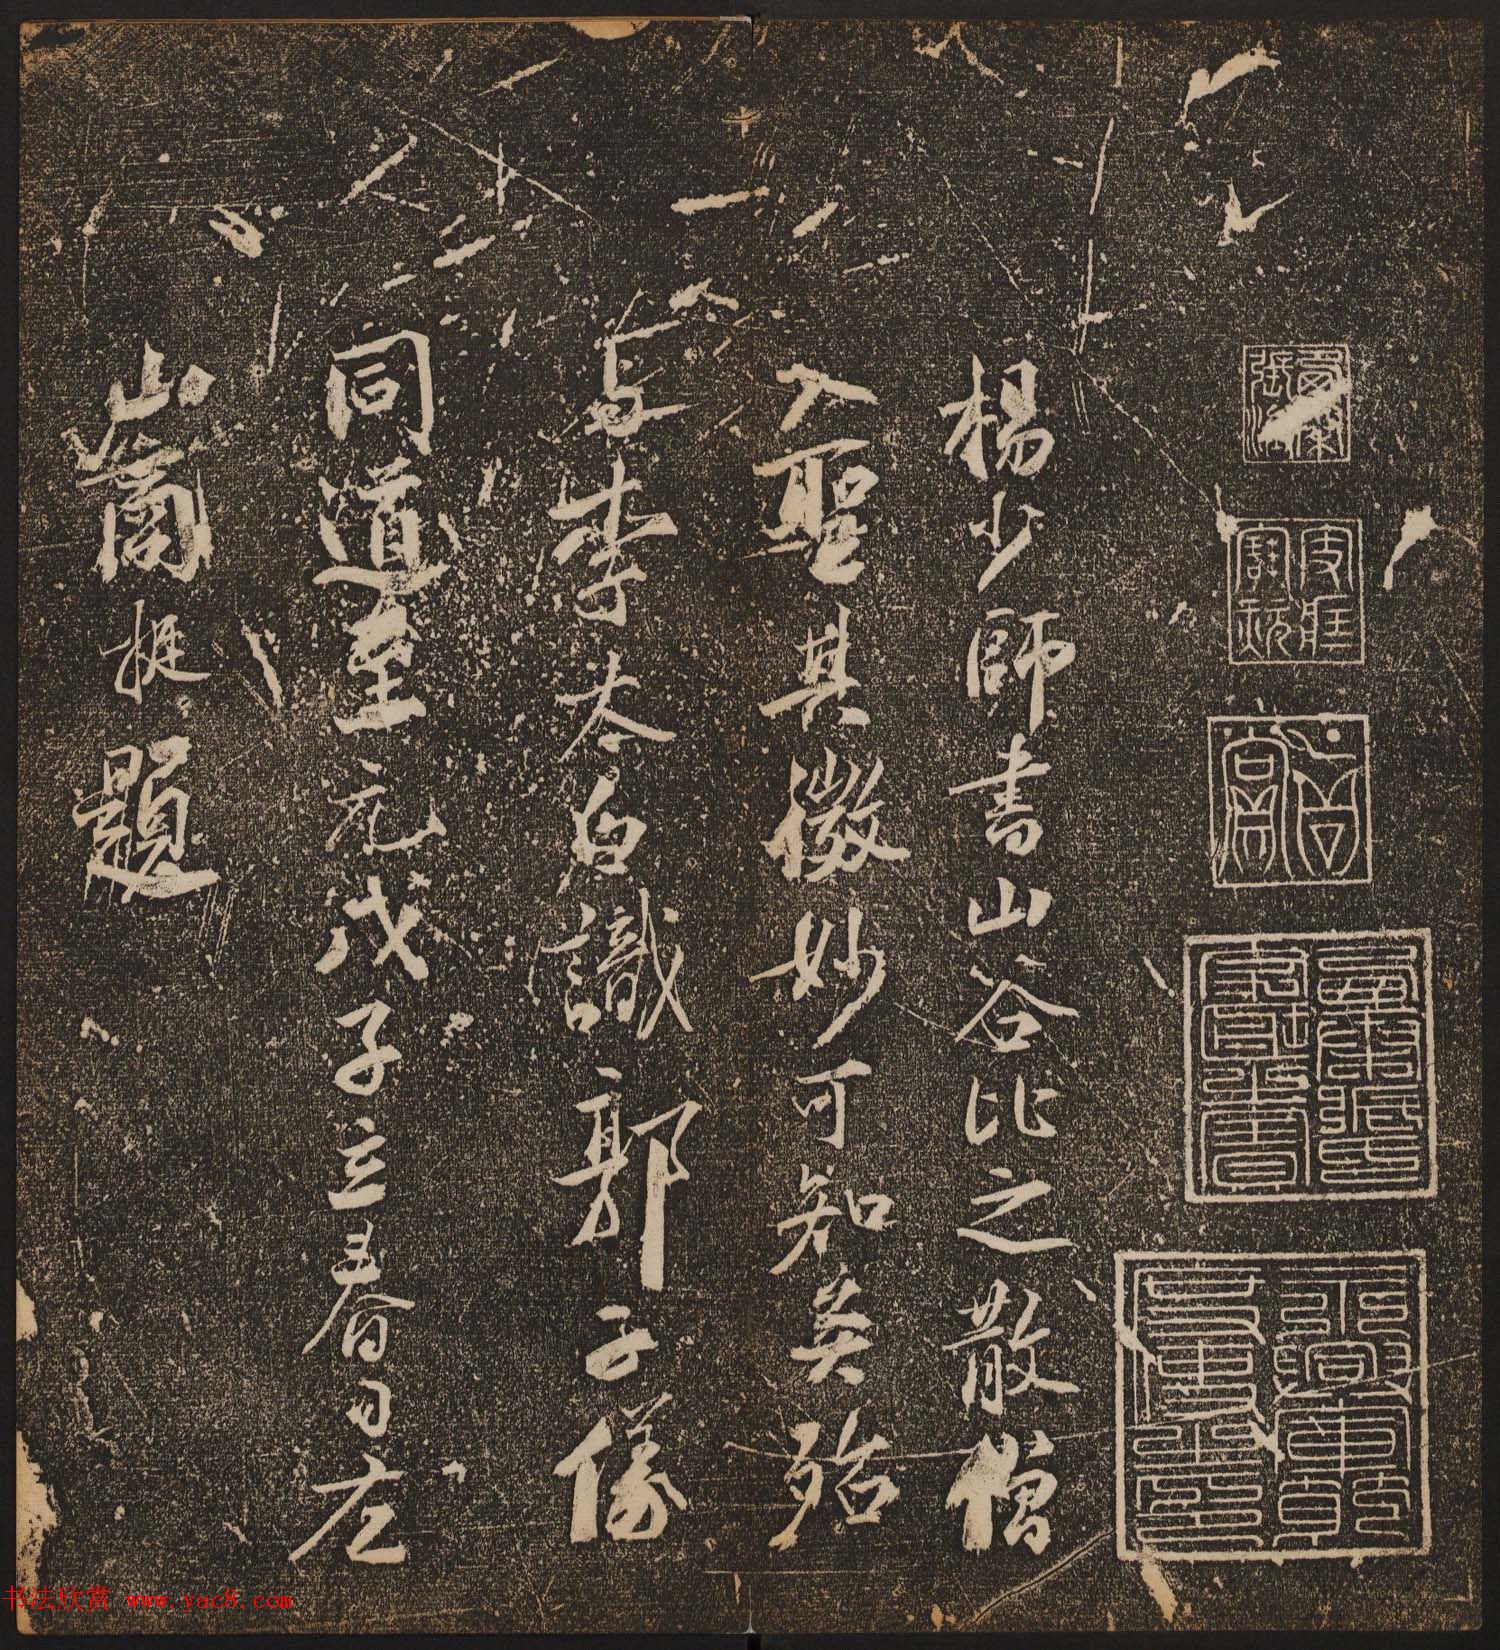 楊少師書山谷比之散僧
入聖其微妙可知矣殆
与李太白識郭子儀
同道至元戊子立春日左
山商挺題
书法欣赏 www.yac8.com